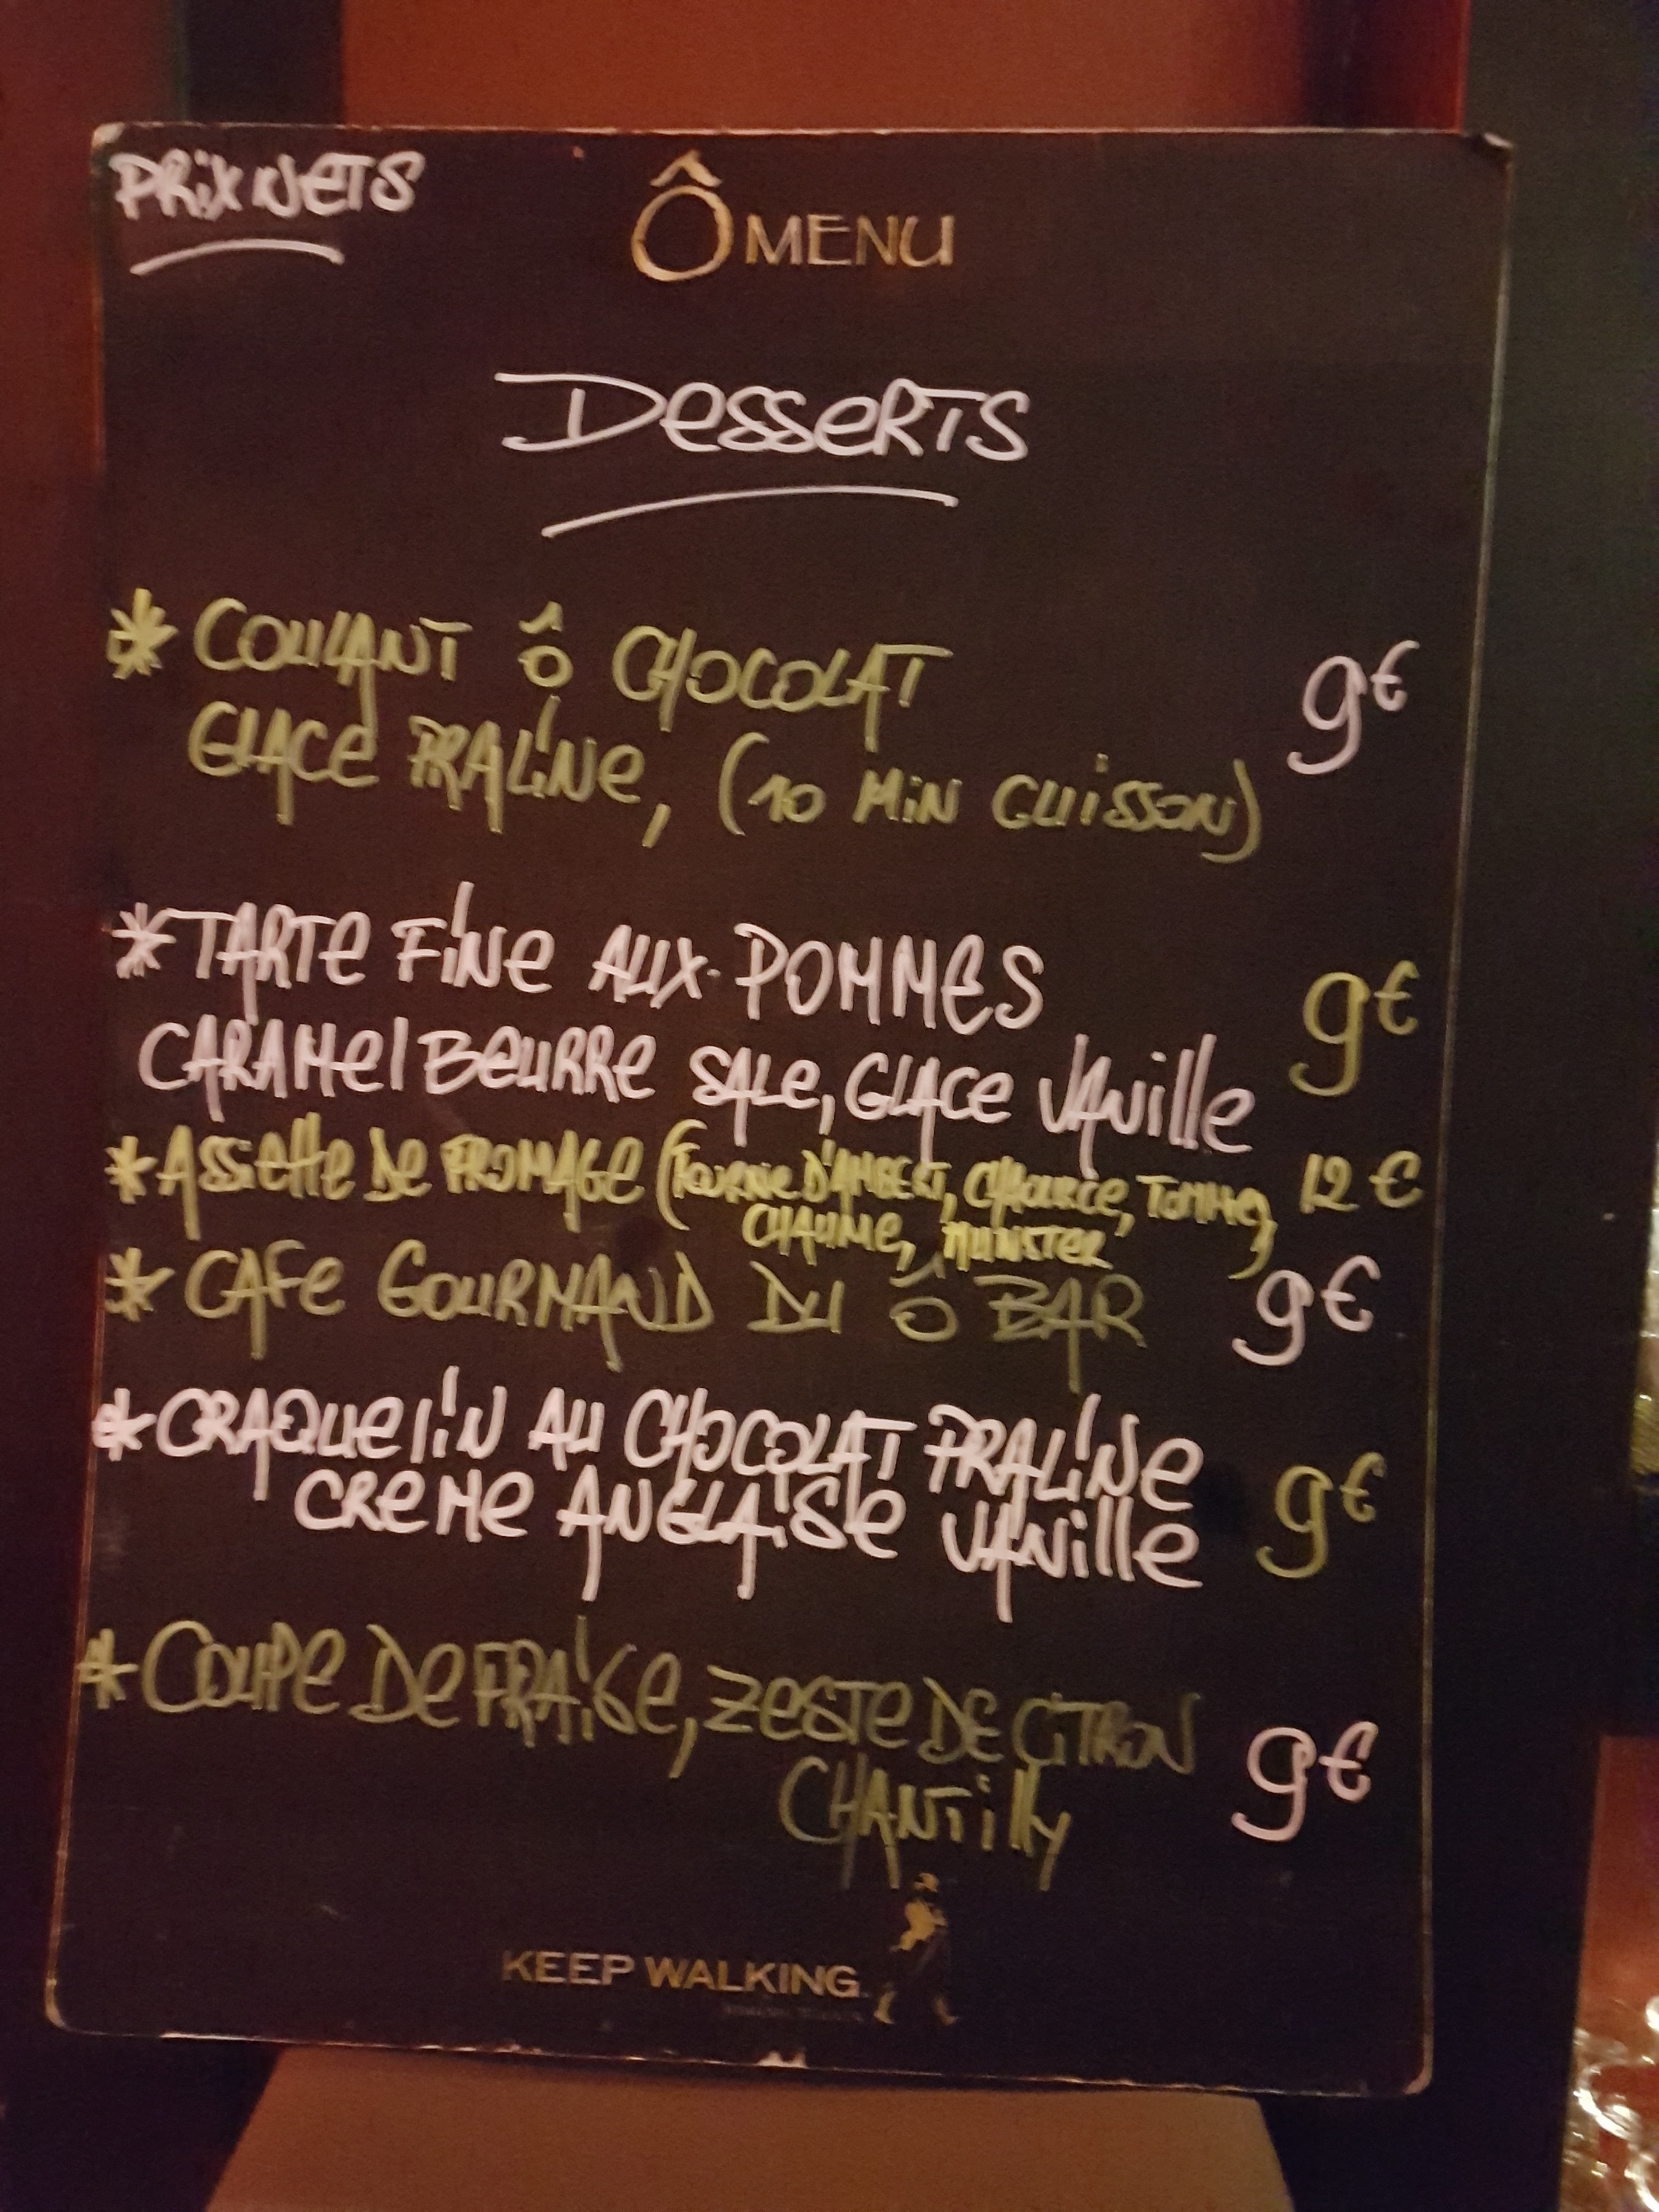 PRIX NETS
Ô MENU
DESSERTS
* COULANT Ô CHOCOLAT 9€
GLACE PRALINE, (10 MIN CUISSON)
* TARTE FINE AUX POMMES 9€
CARAMEL BEURRE SALE, GLACE VANILLE
* ASSIETTE DE FROMAGE (FOURME D'AMBERT, CHAOURCE, TOMME, 12€
CHAUME, MUNSTER)
* CAFE GOURMAND DU Ô BAR 9€
* CRAQUELIN AU CHOCOLAT PRALINE
CREME ANGLAISE VANILLE 9€
* COUPE DE FRAISE, ZESTE DE CITRON
CHANTILLY 9€
KEEP WALKING.